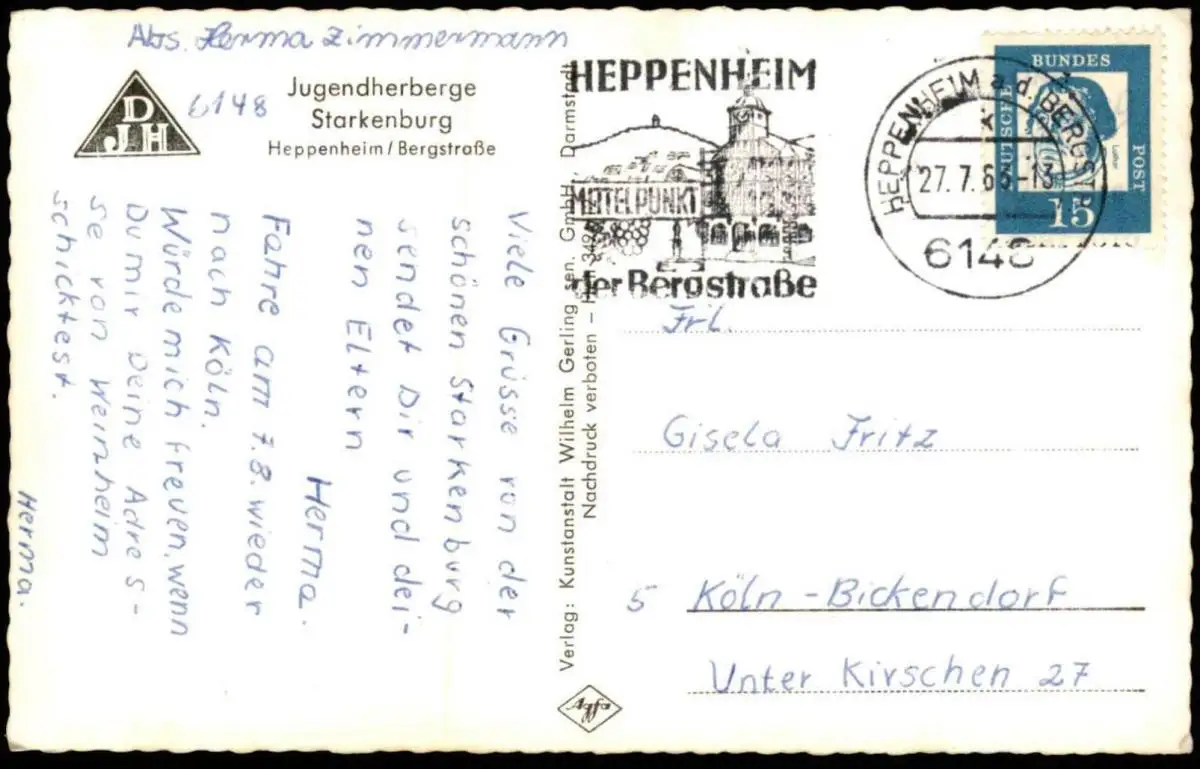 Abs. Herma Zimmermann
D
JH
6148
Jugendherberge
Starkenburg
Heppenheim/Bergstraße
Viele Grüsse von der
schönen Starkenburg
sendet Dir und dei-
nen Eltern
Herma.
Fahre am 7.8. wieder
nach Köln.
Würde mich freuen, wenn
Du mir Deine Adres-
se von Weinheim
schicktest.
Herma.
Verlag: Kunstanstalt Wilhelm Gerling sen. GmbH Darmstadt
Nachdruck verboten –
HEPPENHEIM
MITTELPUNKT
der Bergstraße
HEPPENHEIM a. d. BERGSTR.
27. 7. 6 -13
6148
BUNDES
DEUTSCHE
POST
Luther
15
Frl.
Gisela Fritz
5 Köln-Bickendorf
Unter Kirschen 27
Agfa